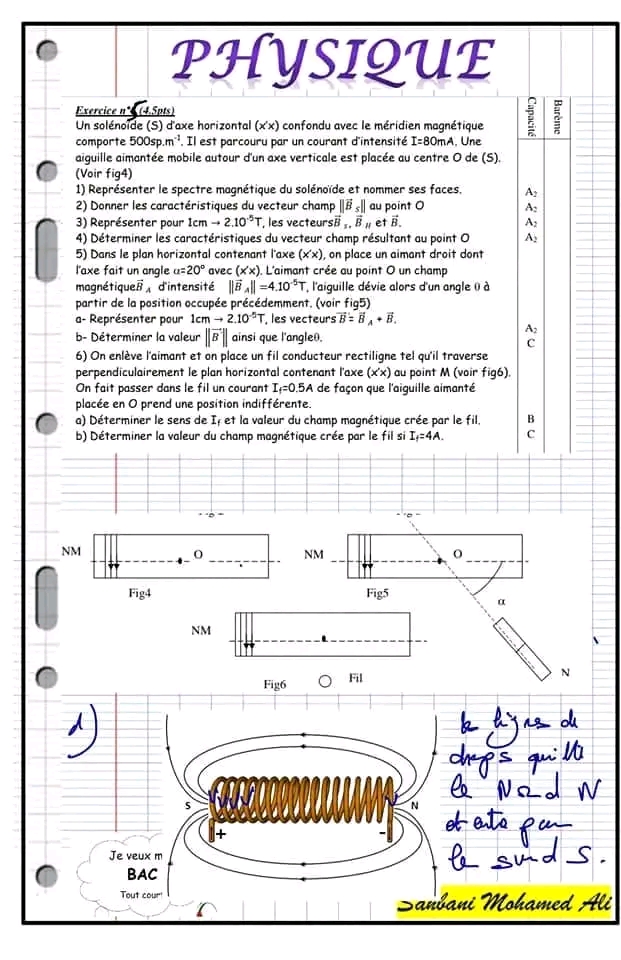 PHYSIQUE
Capacité
Barème
Exercice n°5 (4.5pts)
Un solénoïde (S) d'axe horizontal (x'x) confondu avec le méridien magnétique
comporte 500sp.m⁻¹. Il est parcouru par un courant d'intensité I=80mA. Une
aiguille aimantée mobile autour d'un axe verticale est placée au centre O de (S).
(Voir fig4)
1) Représenter le spectre magnétique du solénoïde et nommer ses faces. A₂
2) Donner les caractéristiques du vecteur champ ||B⃗ s|| au point O A₂
3) Représenter pour 1cm → 2.10⁻⁵T, les vecteursB⃗ s, B⃗ H et B⃗. A₂
4) Déterminer les caractéristiques du vecteur champ résultant au point O A₂
5) Dans le plan horizontal contenant l'axe (x'x), on place un aimant droit dont
l'axe fait un angle α=20° avec (x'x). L'aimant crée au point O un champ
magnétiqueB⃗ A d'intensité ||B⃗ A|| =4.10⁻⁵T, l'aiguille dévie alors d'un angle θ à
partir de la position occupée précédemment. (voir fig5)
a- Représenter pour 1cm → 2.10⁻⁵T, les vecteurs B⃗'= B⃗ A + B⃗. A₂
b- Déterminer la valeur ||B⃗'|| ainsi que l'angleθ. C
6) On enlève l'aimant et on place un fil conducteur rectiligne tel qu'il traverse
perpendiculairement le plan horizontal contenant l'axe (x'x) au point M (voir fig6).
On fait passer dans le fil un courant If=0.5A de façon que l'aiguille aimanté
placée en O prend une position indifférente.
a) Déterminer le sens de If et la valeur du champ magnétique crée par le fil. B
b) Déterminer la valeur du champ magnétique crée par le fil si If=4A. C
NM O
Fig4
NM O
Fig5
α
N
NM
Fig6 Fil
1)
S N
+ -
le lignes de
champs quitte
le Nord N
et entre par
le sud S.
Je veux m
BAC
Tout cour
Sanbani Mohamed Ali